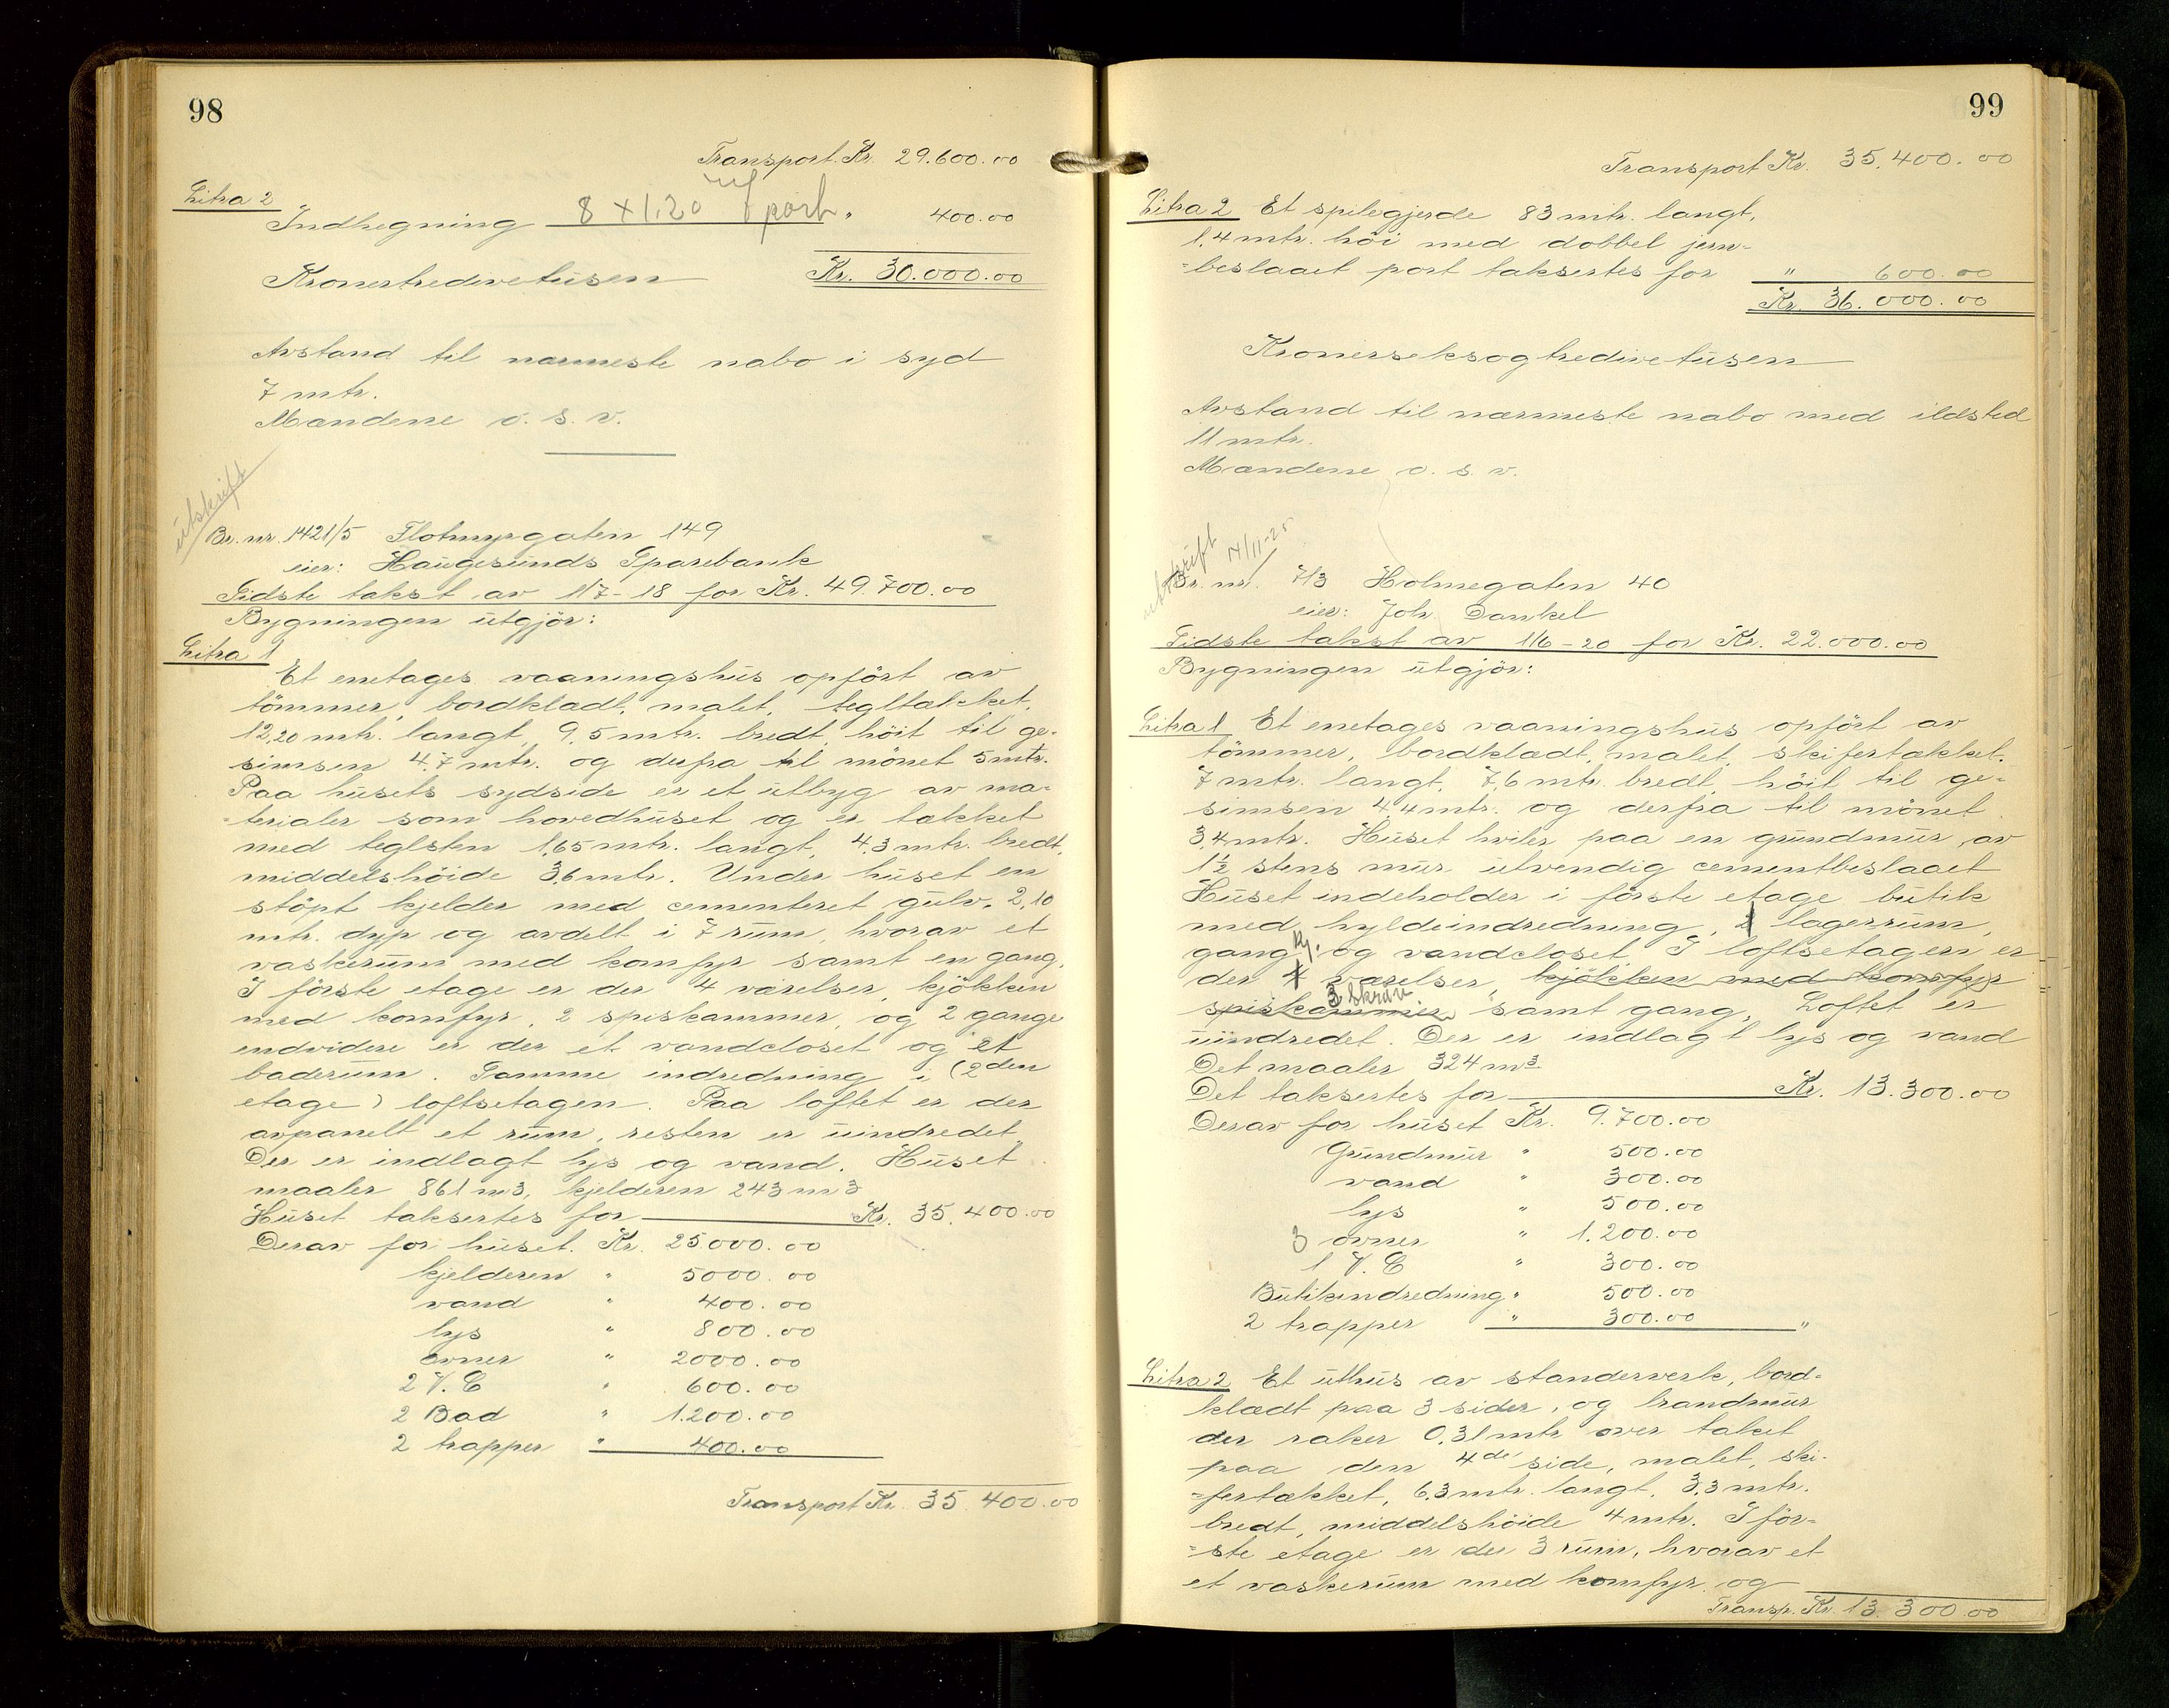 98
Transport Kr. 29.600.00
Litra 2
Indhegning 8 x 1.20 port " 400.00
Kronertredivetusen Kr. 30.000.00
Avstand til nærmeste nabo i syd
7 mtr.
Mændene o. s. v.
utskrift
Br. nr. 1421/5 Flotmyrgaten 149
eier: Haugesunds Sparebank
Sidste takst av 1/7-18 for Kr. 49.700.00
Bygningen utgjör:
Litra 1
Et enetages vaaningshus opfört av
tömmer, bordklædt, malet, tegltækket,
12,20 mtr. langt, 9,5 mtr. bredt, höit til ge-
simsen 4,7 mtr. og derfra til mönet 5 mtr.
Paa husets sydside er et utbyg av ma-
=terialer som hovedhuset og er tækket
med teglsten 1,65 mtr. langt, 4,3 mtr. bredt,
middelshöide 3,6 mtr. Under huset en
stöpt kjelder med cementeret gulv. 2,10
mtr. dyp og avdelt i 7 rum, hvorav et
vaskerum med komfyr samt en gang.
I förste etage er der 4 værelser, kjökken
med komfyr, 2 spiskammer, og 2 gange
endvidere er der et vandcloset og et
baderum. Samme indredning i (2den
etage) loftsetagen. Paa loftet er der
avpanelt et rum, resten er uindredet.
Der er indlagt lys og vand. Huset
maaler 861 m3, kjelderen 243 m3
Huset taksertes for Kr. 35.400.00
Derav for huset. Kr. 25000.00
kjelderen " 5000.00
vand " 400.00
lys " 800.00
ovner " 2000.00
2 V.C " 600.00
2 Bad " 1.200.00
2 trapper " 400.00
Transport Kr. 35.400.00
99
Transport Kr. 35.400.00
Litra 2 Et spilegjerde 83 mtr. langt,
1,4 mtr. höi med dobbel jern-
=beslaaet port taksertes for " 600.00
Kr. 36.000.00
Kronerseksogtredivetusen
Avstand til nærmeste nabo med ildsted
11 mtr.
Mændene o. s. v.
utskrift 14/11-25
Br. nr. 713 Holmegaten 40
eier: Joh. Dankel
Sidste takst av 1/6-20 for Kr. 22.000.00
Bygningen utgjör:
Litra 1 Et enetages vaaningshus opfört av
tömmer, bordklædt, malet, skifertækket.
7 mtr. langt, 7,6 mtr. bredt, höit til ge-
simsen 4,4 mtr. og derfra til mönet
3,4 mtr. Huset hviler paa en grundmur av
1½ stens mur utvendig cementbeslaaet
Huset indeholder i förste etage butik
med hyldeindredning, 1 lagerrum,
gang kj. og vandcloset. I loftsetagen er
der værelser, kjökken med komfyr
spiskammer, 3 skrav samt gang. Loftet er
uindredet. Der er indlagt lys og vand
Det maaler 324 m3
Det taksertes for Kr. 13.300.00
Derav for huset Kr. 9.700.00
Grundmur " 500.00
vand " 300.00
lys " 500.00
3 ovner " 1.200.00
1 V.C " 300.00
Butikindredning " 500.00
2 trapper " 300.00 "
Litra 2 Et uthus av standerverk, bord-
klædt paa 3 sider, og brandmur
der raker 0,31 mtr over taket
paa den 4de side, malet, ski-
=fertækket, 6,3 mtr. langt, 3,3 mtr.
bredt, middelshöide 4 mtr. I för-
=ste etage er der 3 rum, hvorav et
et vaskerum med komfyr og
Transp. Kr. 13.300.00